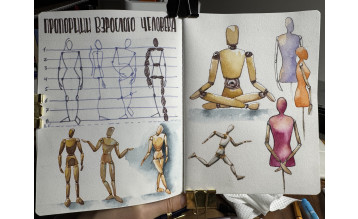 ПРОПОРЦИИ ВЗРОСЛОГО ЧЕЛОВЕКА